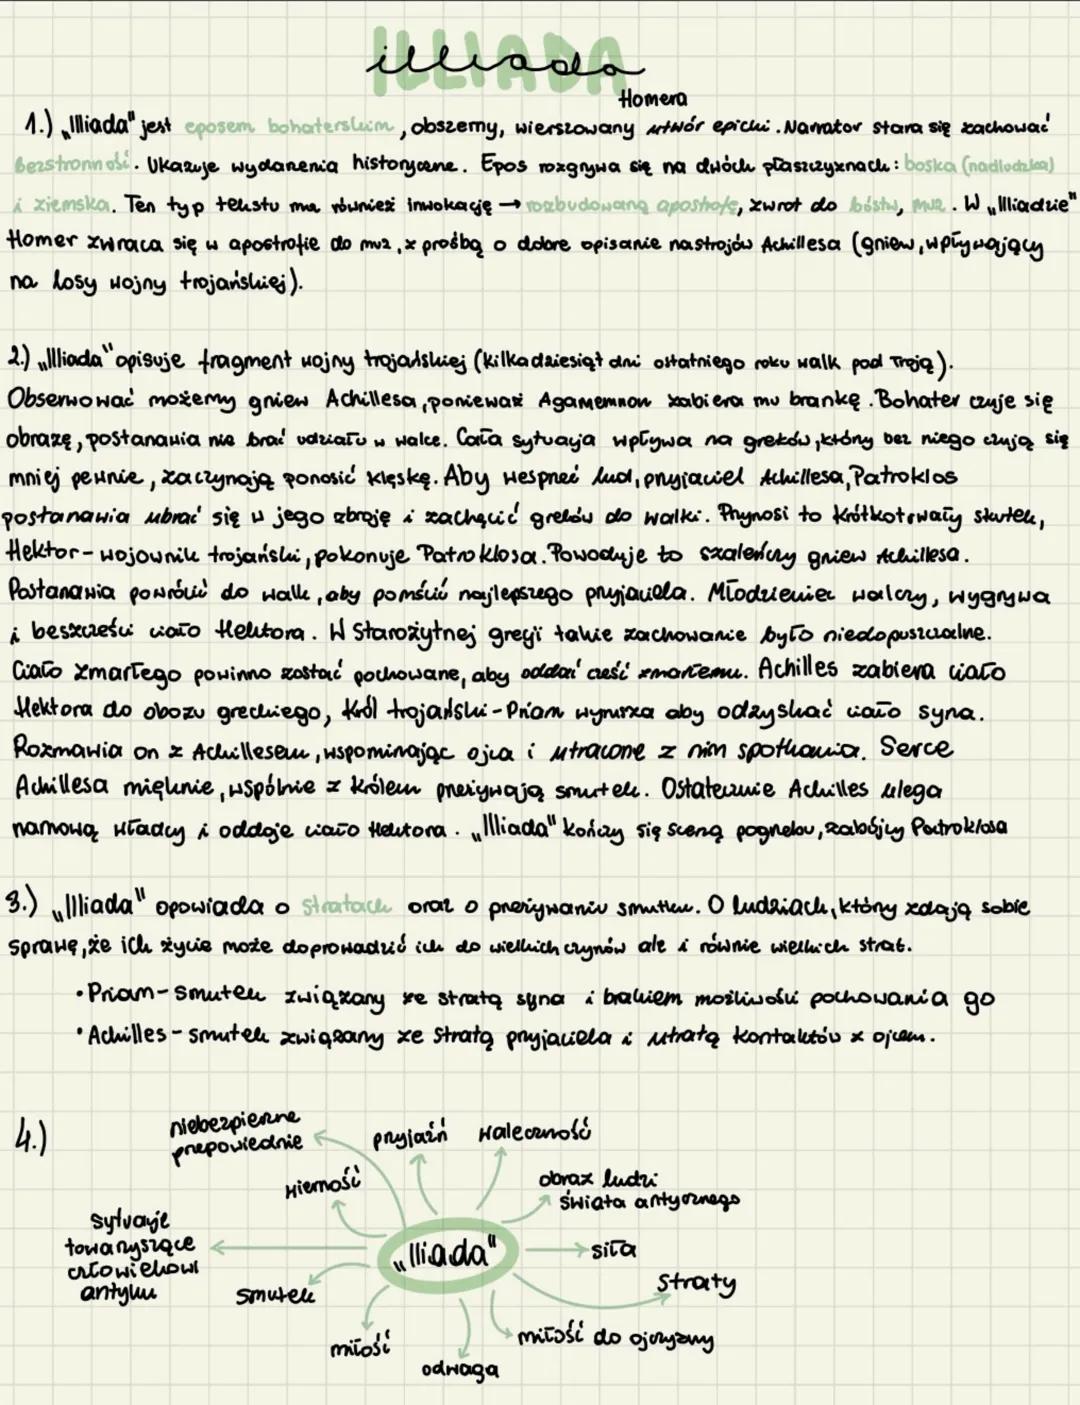 ILLIADA
illiada
Homera
1.) „Illiada" jest eposem bohaterskim, obszerny, wierszowany utwór epicki. Narrator stara się zachować
bezstronność. Ukazuje wydarzenia historyczne. Epos rozgrywa się na dwóch płaszczyznach: boska (nadludzka)
i ziemska. Ten typ tekstu ma również inwokację → rozbudowaną apostrofę, zwrot do bóstw, muz. W „Illiadzie"
Homer zwraca się w apostrofie do muz, z prośbą o dobre opisanie nastrojów Achillesa (gniew, wpływający
na losy wojny trojańskiej).
2.) „Illiada" opisuje fragment wojny trojańskiej (kilkadziesiąt dni ostatniego roku walk pod Troją).
Obserwować możemy gniew Achillesa, ponieważ Agamemnon zabiera mu brankę. Bohater czuje się
obrazę, postanawia nie brać udziału w walce. Cała sytuacja wpływa na greków, który bez niego czują się
mniej pewnie, zaczynają ponosić klęskę. Aby wesprzeć lud, przyjaciel Achillesa, Patroklos
postanawia ubrać się w jego zbroję i zachęcić greków do walki. Przynosi to krótkotrwały skutek,
Hektor - wojownik trojański, pokonuje Patroklosa. Powoduje to szaleńczy gniew Achillesa.
Postanawia powrócić do walk, aby pomścić najlepszego przyjaciela. Młodzieniec walczy, wygrywa
i beszcześci ciało Hektora. W Starożytnej grecji takie zachowanie było niedopuszczalne.
Ciało zmarłego powinno zostać pochowane, aby oddać cześć zmarłemu. Achilles zabiera ciało
Hektora do obozu greckiego, król trojański - Priam wyrusza aby odzyskać ciało syna.
Rozmawia on z Achillesem, wspominając ojca i utracone z nim spotkania. Serce
Achillesa mięknie, wspólnie z królem przeżywają smutek. Ostatecznie Achilles ulega
namową władcy i oddaje ciało Hektora. „Illiada" kończy się sceną pogrzebu, zabójcy Patroklosa
3.) „Illiada" opowiada o stratach oraz o przeżywaniu smutku. O ludziach, który zdają sobie
sprawę, że ich życie może doprowadzić ich do wielkich czynów ale i równie wielkich strat.
• Priam - smutek związany ze stratą syna i brakiem możliwości pochowania go
• Achilles - smutek związany ze stratą przyjaciela i utratą kontaktów z ojcem.
4.)
niebezpieczne
przepowiednie
przyjaźń
waleczność
wierność
obraz ludzi
świata antycznego
sytuacje
towarzyszące
człowiekowi
antyku
„Iliada"
siła
smutek
straty
miłość
miłość do ojczyzny
odwaga